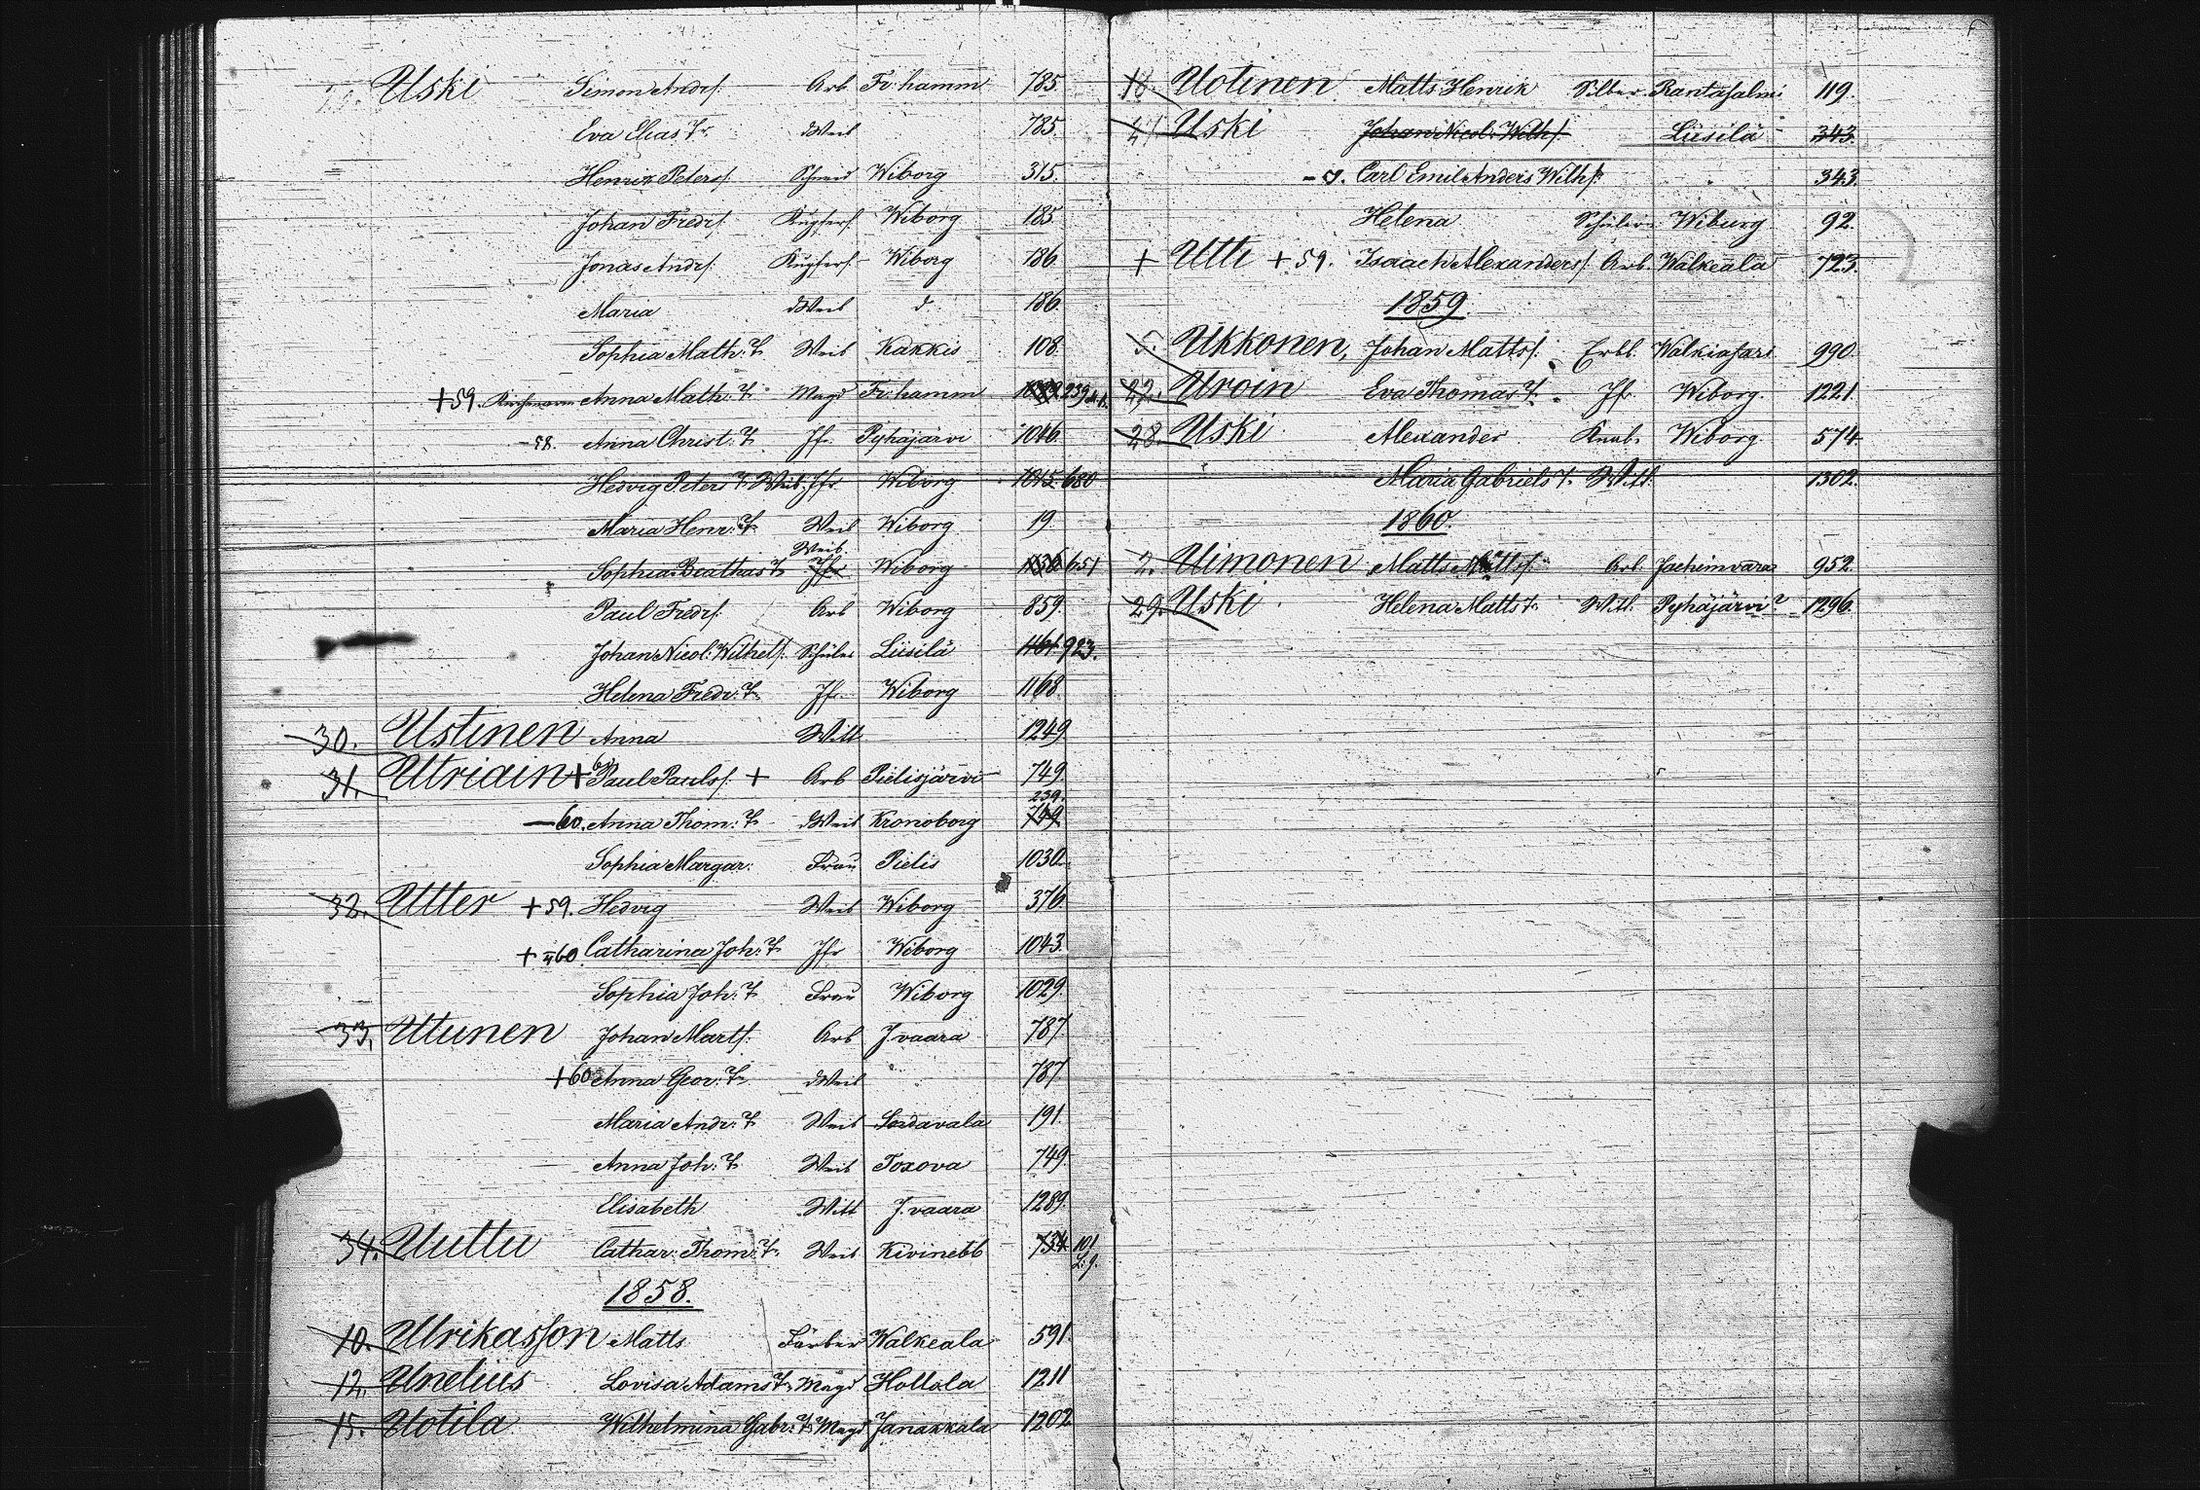 29. Uski Simon Andrs. Arb Fr:hamm 785.
Eva Elias T. d Weib 785.
Henrik Peters. Schmid Wiborg 315.
Johan Fredrs. Wiborg 185.
Jonas Andrs. Wiborg 186.
Maria d Weib d. 186.
Sophia Math: T. Weib Kakkis 108.
+59. Anna Math: T. Magd Fr:hamm 239
-58. Anna Christ: T. Jfr Pyhäjärvi 1046.
Hedvig Peters T. Weib. Jfr Wiborg 1015. 680
Maria Henr: T. Weib Wiborg 19.
Weib.
Sophia Beathas T. Jfr Wiborg 1036 651
Paul Fredrs. Arb Wiborg 859.
Johan Nicol: Wilhels. Schüler Liisilä 1161. 923.
Helena Fredr: T. Jfr Wiborg 1168.
30. Ustinen Anna Witt. 1249
31. Utriain + Paul Pauls. + Arb Pielisjärvi 749.
239.
-60. Anna Thom: T. d Weib Kronoborg 749
Sophia Margar: Frau Pielis 1030.
32. Utter +59. Hedvig Weib Wiborg 376.
+ 60 Catharina Joh: T. Jfr Wiborg 1043.
Sophia Joh: T. Frau Wiborg 1029.
33. Utunen Johan Marts. Arb J.vaara 787
+60 Anna Geor: T. d Weib 787
Maria Andr: T. Weib Sordavala 191.
Anna Joh: T. Weib Toxova 749.
Elisabeth Witt J.vaara 1289.
34. Uuttu Cathar: Thom: T. Weib Kivinebb 734 101
1858.
10. Ulrikasson Matts Färber Walkeala 591.
12. Unelius Lovisa Adams T. Magd Hollola 1211
15. Uotila Wilhelmina Gabr: T. Magd Janakkala 1202
18. Uotinen Matts Henrik Silber. Rantasalmi 119.
27. Uski Johan Nicol: Wilhs. Liisilä 343.
Carl Emil Anders Wilhs. 343.
Helena Schülerin Wiburg 92.
+ Utti +59. Isaach Alexanders. Arb. Walkeala 723.
1859.
5. Ukkonen, Johan Matts. Erbl. Walkiasari 990.
22. Uroin Eva Thomas T. Jfr Wiborg. 1221.
28. Uski Alexander Knab. Wiborg. 574.
Maria Gabriels T. Witt. 1302.
1860.
2. Uimonen Matts Matts. Arb. Jachimvaara 952.
29. Uski Helena Matts T. Witt. Pyhäjärvi? 1296.